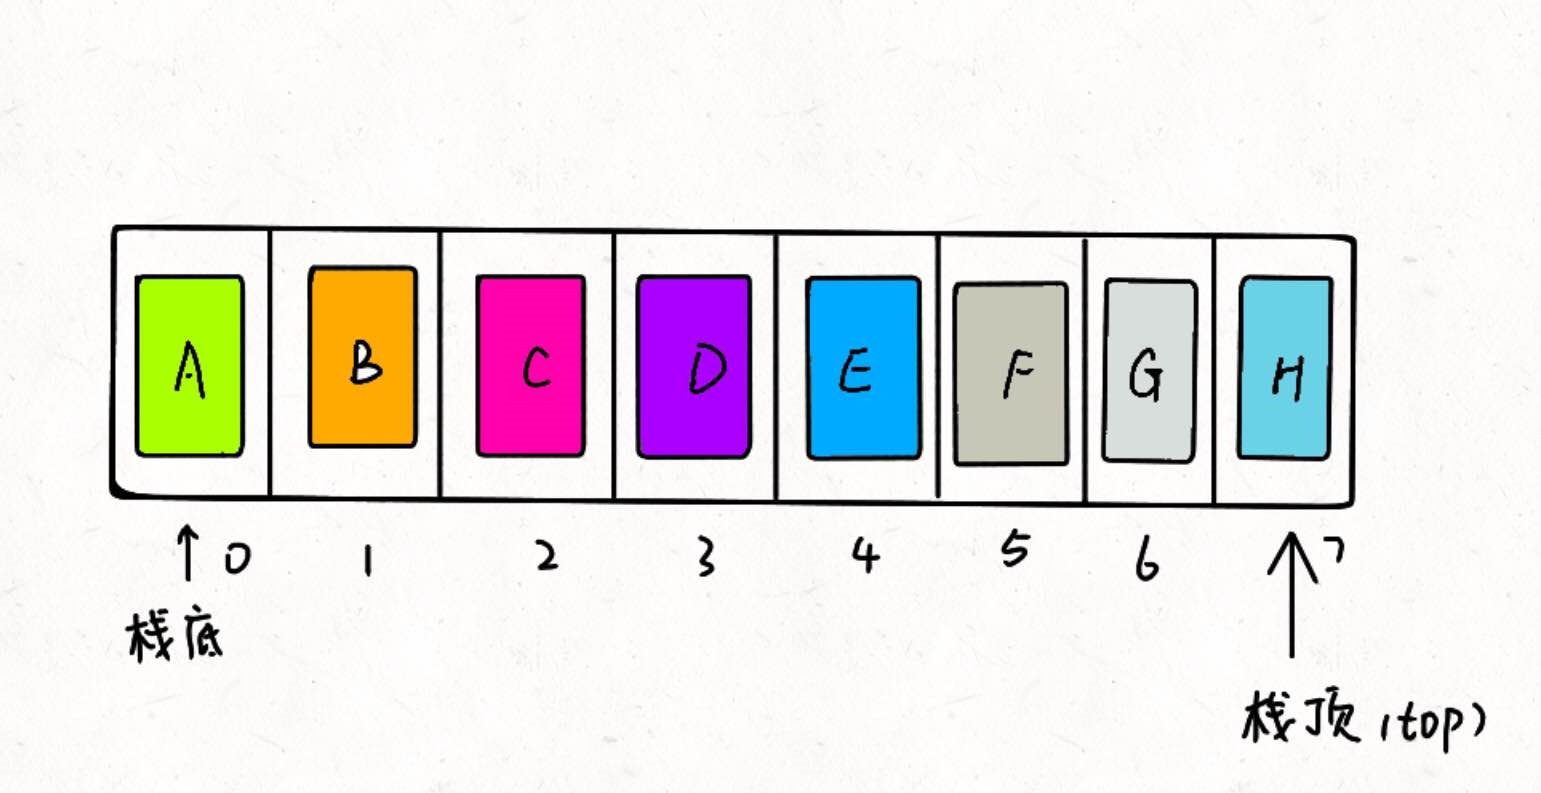 A B C D E F G H
0 1 2 3 4 5 6 7
栈底
栈顶(top)